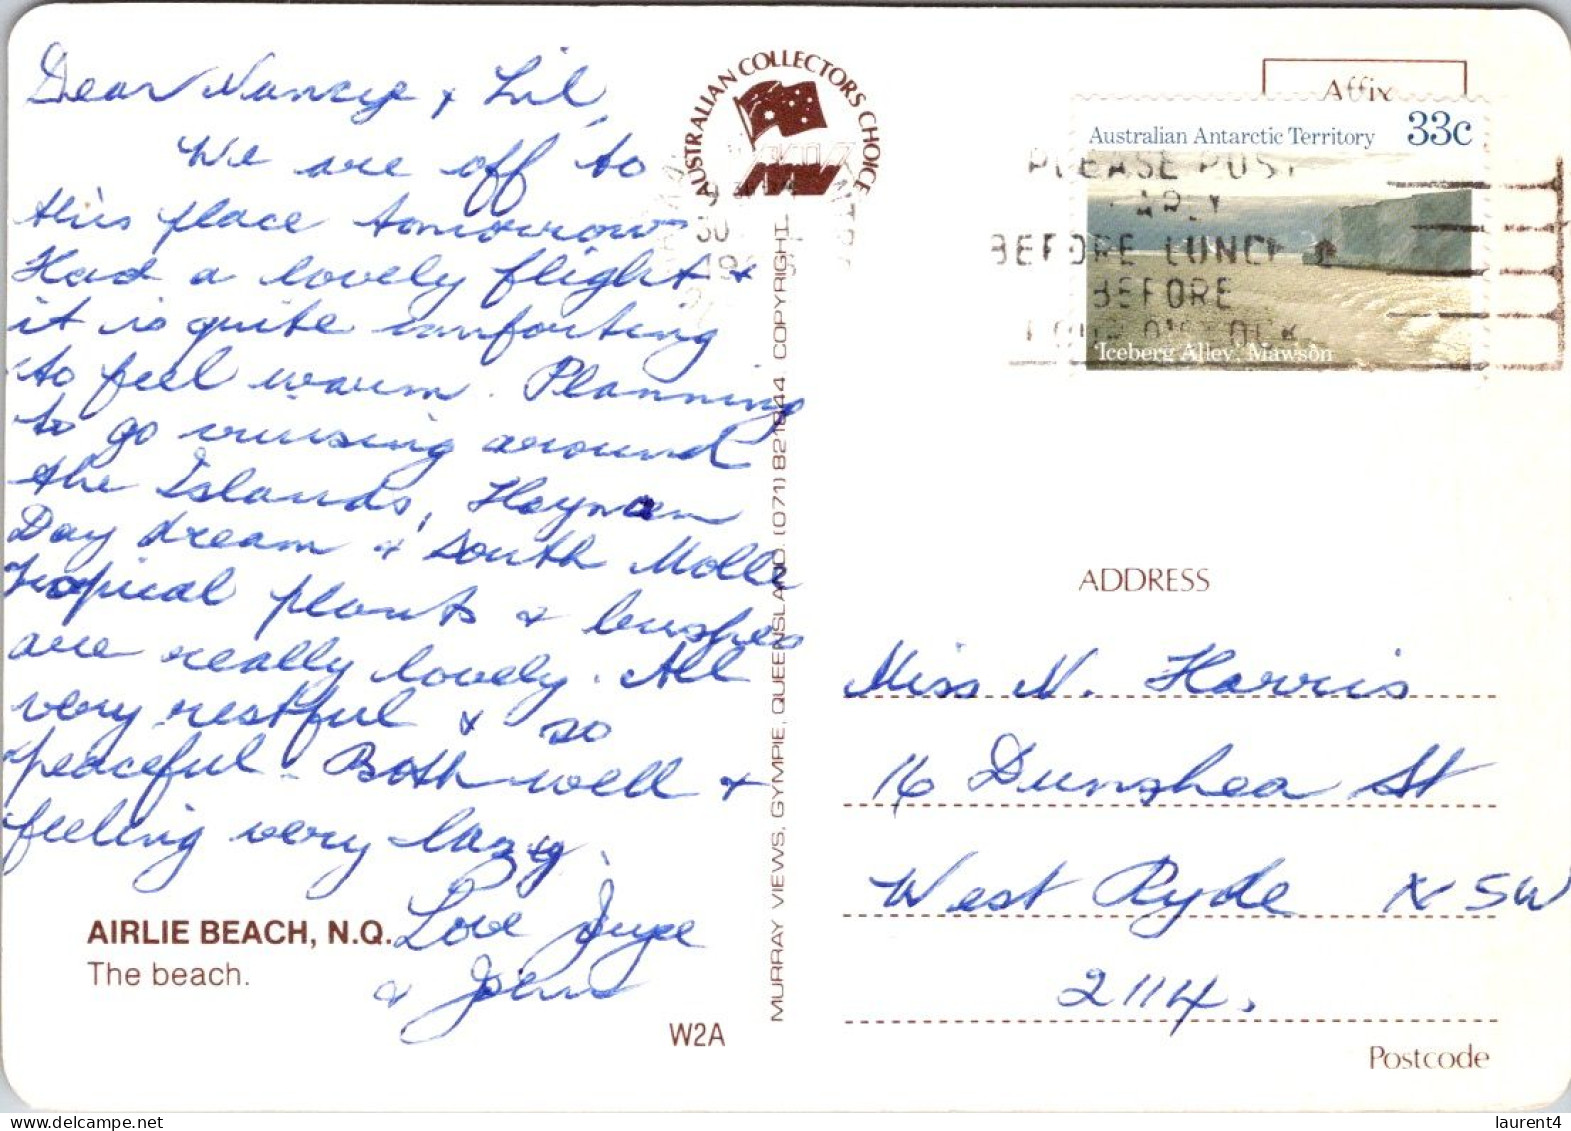 Dear Nancye & Lil,
We are off to
this place tomorrow
Had a lovely flight &
it is quite comforting
to feel warm. Planning
to go cruising around
the Islands, Hayman
Day dream & South Molle
Tropical plants & bushes
are really lovely. All
very restful & so
peaceful. Both well &
feeling very lazy.
Love Joyce
& John
AIRLIE BEACH, N.Q.
The beach.
W2A
AUSTRALIAN COLLECTORS CHOICE
MURRAY VIEWS, GYMPIE, QUEENSLAND. (071) 821844 COPYRIGHT
Affix
Australian Antarctic Territory 33c
'Iceberg Alley', Mawson
PLEASE POST
EARLY
BEFORE LUNCH
BEFORE
ADDRESS
Miss N. Harris
16 Dunshea St
West Ryde NSW
2114.
Postcode
laurent4